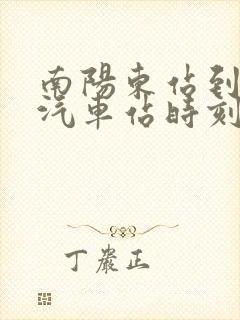 南陽東佔到
汽車佔時刻
丁嚴正